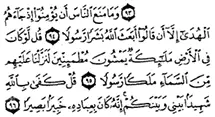 ٩٣ وَمَا مَنَعَ النَّاسَ أَن يُؤْمِنُوٓا۟ إِذْ جَآءَهُمُ
ٱلْهُدَىٰٓ إِلَّآ أَن قَالُوٓا۟ أَبَعَثَ ٱللَّهُ بَشَرًا رَّسُولًا ٩٤ قُل لَّوْ كَانَ
فِى ٱلْأَرْضِ مَلَٰٓئِكَةٌ يَمْشُونَ مُطْمَئِنِّينَ لَنَزَّلْنَا عَلَيْهِم
مِّنَ ٱلسَّمَآءِ مَلَكًا رَّسُولًا ٩٥ قُلْ كَفَىٰ بِٱللَّهِ
شَهِيدًۢا بَيْنِى وَبَيْنَكُمْ إِنَّهُۥ كَانَ بِعِبَادِهِۦ خَبِيرًۢا بَصِيرًا ٩٦